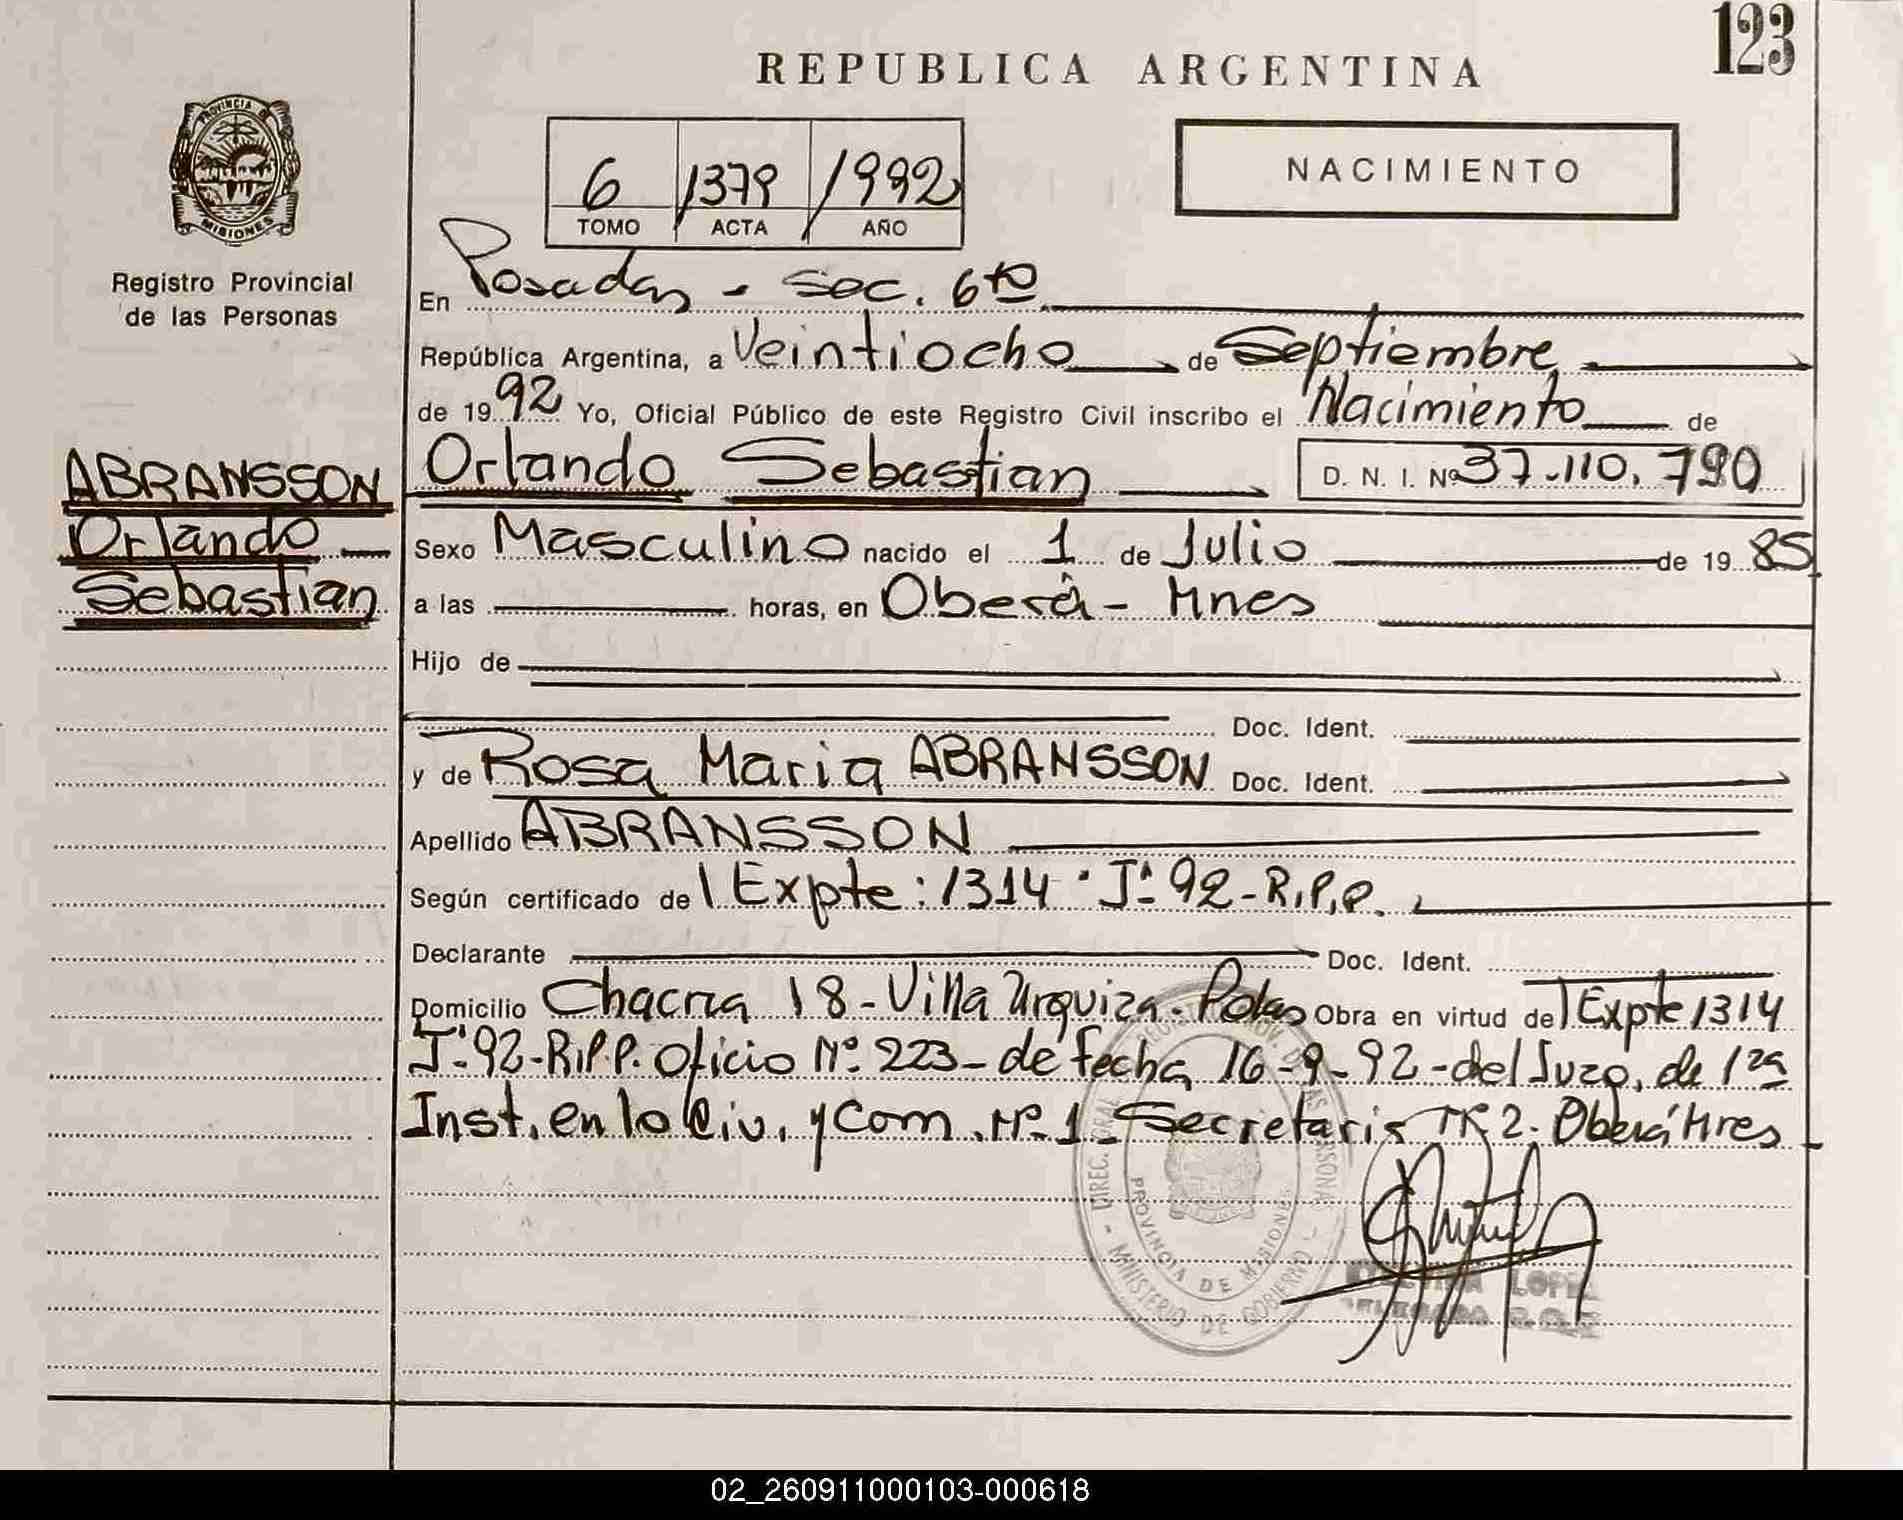 123
REPUBLICA ARGENTINA
NACIMIENTO
6 1379 1992
TOMO ACTA AÑO
PROVINCIA DE
MISIONES
Registro Provincial
de las Personas
En Posadas - Sec. 6to
República Argentina, a Veintiocho de Septiembre
de 1992 Yo, Oficial Público de este Registro Civil inscribo el Nacimiento de
ABRANSSON
Orlando
Sebastian
Orlando Sebastian D. N. I. Nº 37.110.790
Sexo Masculino nacido el 1 de Julio de 1985
a las horas, en Oberá - Mnes
Hijo de
Doc. Ident.
y de Rosa Maria ABRANSSON Doc. Ident.
Apellido ABRANSSON
Según certificado de Expte: 1314 "J" 92-R.P.P.
Declarante Doc. Ident.
Domicilio Chacra 18 - Villa Urquiza - Pdas Obra en virtud de Expte 1314
"J" 92-R.P.P. Oficio Nº 223 - de fecha 16-9-92 - del Juzg. de 1ra
Inst. en lo Civ. y Com. Nº 1 - Secretaria Nº 2. Oberá Mnes
PROVINCIA DE MISIONES
MINISTERIO DE GOBIERNO
LOPEZ
02_260911000103-000618